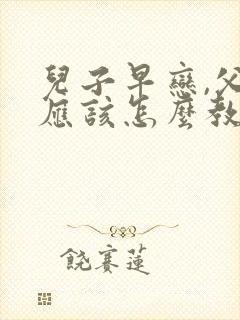 兒子早戀,父
應該怎麼教
饒賽蓮